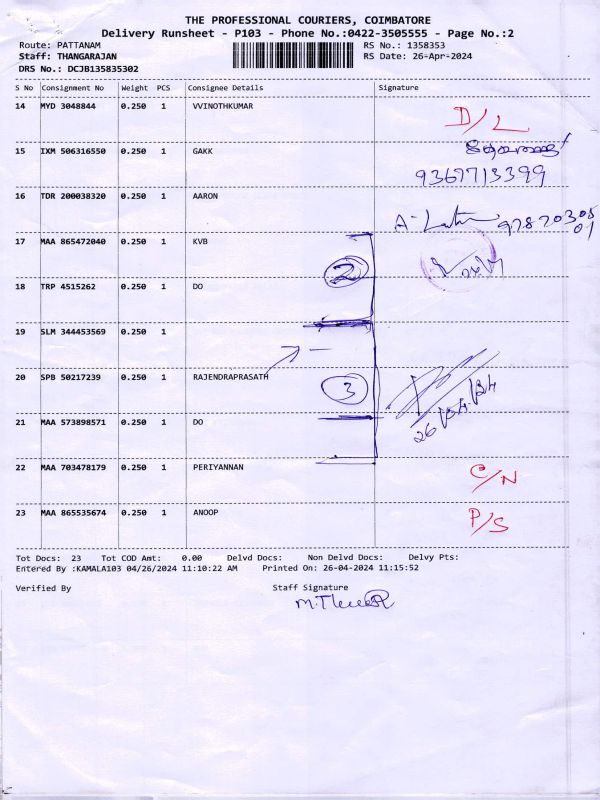 THE PROFESSIONAL COURIERS, COIMBATORE
Delivery Runsheet - P103 - Phone No.:0422-3505555 - Page No.:2
Route: PATTANAM RS No.: 1358353
Staff: THANGARAJAN RS Date: 26-Apr-2024
DRS No.: DCJB135835302
S No Consignment No Weight PCS Consignee Details Signature
14 MYD 3048844 0.250 1 VVINOTHKUMAR D/L
15 IXM 506316550 0.250 1 GAKK
9367713399
16 TDR 200038320 0.250 1 AARON
17 MAA 865472040 0.250 1 KVB
2
18 TRP 4515262 0.250 1 DO
19 SLM 344453569 0.250 1
20 SPB 50217239 0.250 1 RAJENDRAPRASATH 3
26/04/24
21 MAA 573898571 0.250 1 DO
22 MAA 703478179 0.250 1 PERIYANNAN C/N
23 MAA 865535674 0.250 1 ANOOP P/S
Tot Docs: 23 Tot COD Amt: 0.00 Delvd Docs: Non Delvd Docs: Delvy Pts:
Entered By :KAMALA103 04/26/2024 11:10:22 AM Printed On: 26-04-2024 11:15:52
Verified By Staff Signature